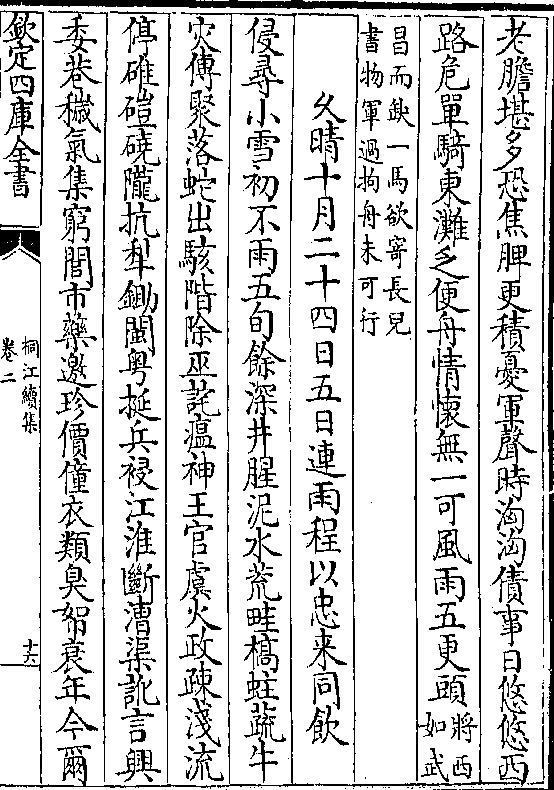 老膽堪多恐焦脾更積憂軍聲時洶洶債事日悠悠西
路危單騎東灘乏便舟情懷無一可風雨五更頭將西如武
昌而缺一馬欲寄長兒
書物軍過拘舟未可行
久晴十月二十四日五日連雨程以忠来同飲
侵尋小雪初不雨五旬餘深井腥泥水荒畦槁蛀蔬牛
災傳聚落蛇出駭階除巫託瘟神王官虞火政疎淺流
停碓磑磽隴抗犁鋤閩粤挺兵祲江淮斷漕渠訛言興
委巷穢氣集窮閭市藥邀珍價僮衣類臭帤衰年今爾
欽定四庫全書
桐江續集
卷二
十六